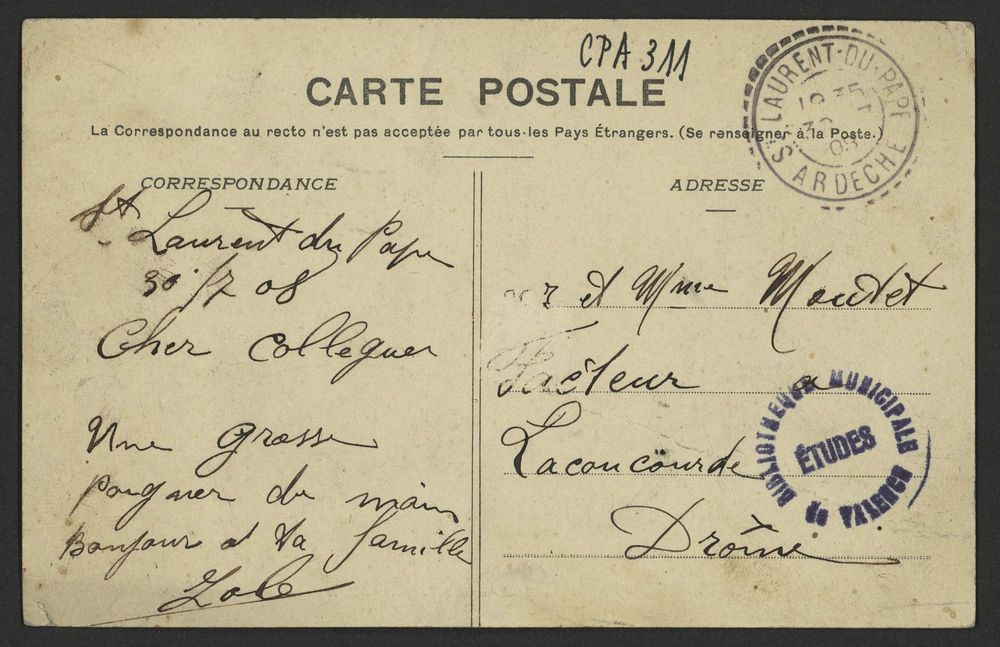 CPA 311
CARTE POSTALE
La Correspondance au recto n'est pas acceptée par tous les Pays Étrangers. (Se renseigner à la Poste.)
ST LAURENT-DU-PAPE
08
ARDECHE
CORRESPONDANCE
St Laurent du Pape
30/7 08
Cher Collegues
Une Grosse
poigner de main
Bonjour a ta famille
ADRESSE
r et Mme Moutet
Facteur a
Laconcourde
Drôme
BIBLIOTHEQUE MUNICIPALE
ÉTUDES
DE VALENCE